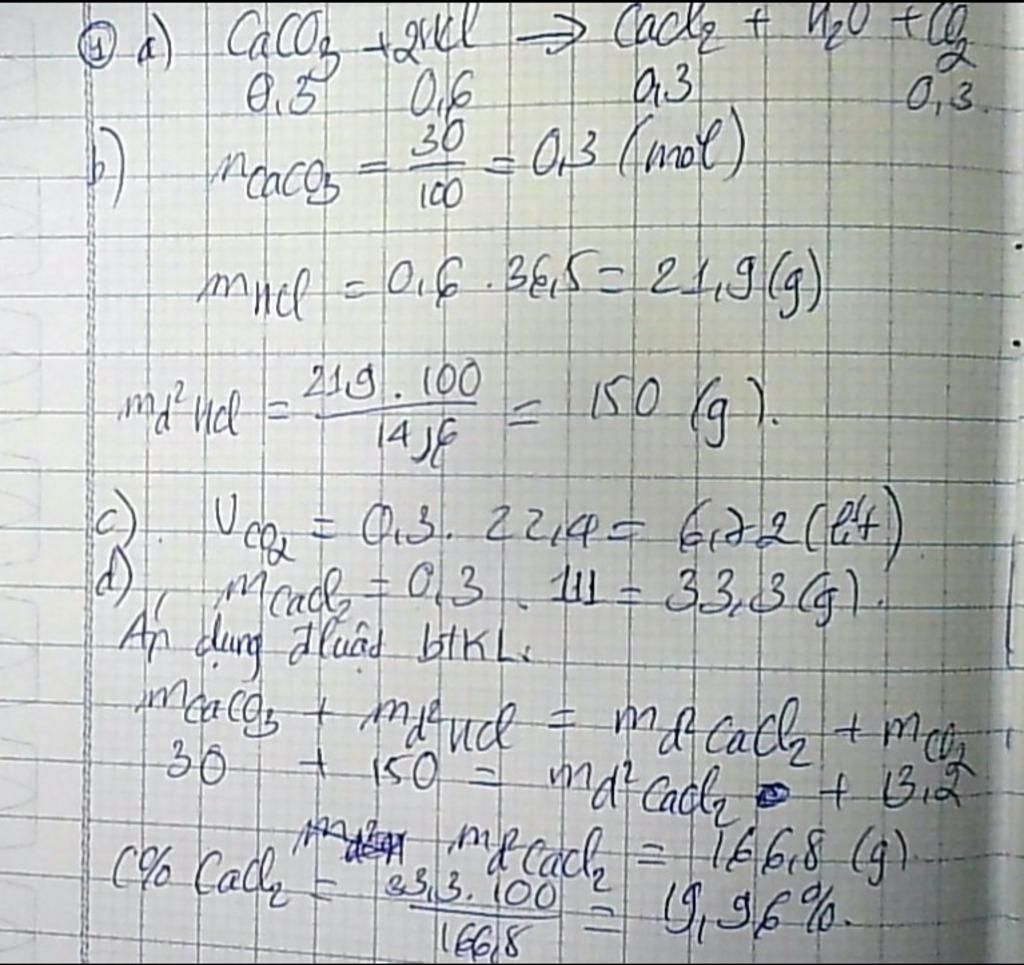 ④ a) CaCO₃ + 2HCl → CaCl₂ + H₂O + CO₂
0,3 0,6 0,3 0,3
b) nCaCO₃ = 30/100 = 0,3 (mol)
mHCl = 0,6 . 36,5 = 21,9 (g)
md² HCl = 21,9 . 100 / 14,6 = 150 (g).
c) VCO₂ = 0,3 . 22,4 = 6,72 (lít)
d) mCaCl₂ = 0,3 . 111 = 33,3 (g).
Áp dụng đluật btKL:
mCaCO₃ + md² HCl = md² CaCl₂ + mCO₂
30 + 150 = md² CaCl₂ + 13,2
md² CaCl₂ = 166,8 (g)
C% CaCl₂ = 33,3 . 100 / 166,8 = 19,96%.